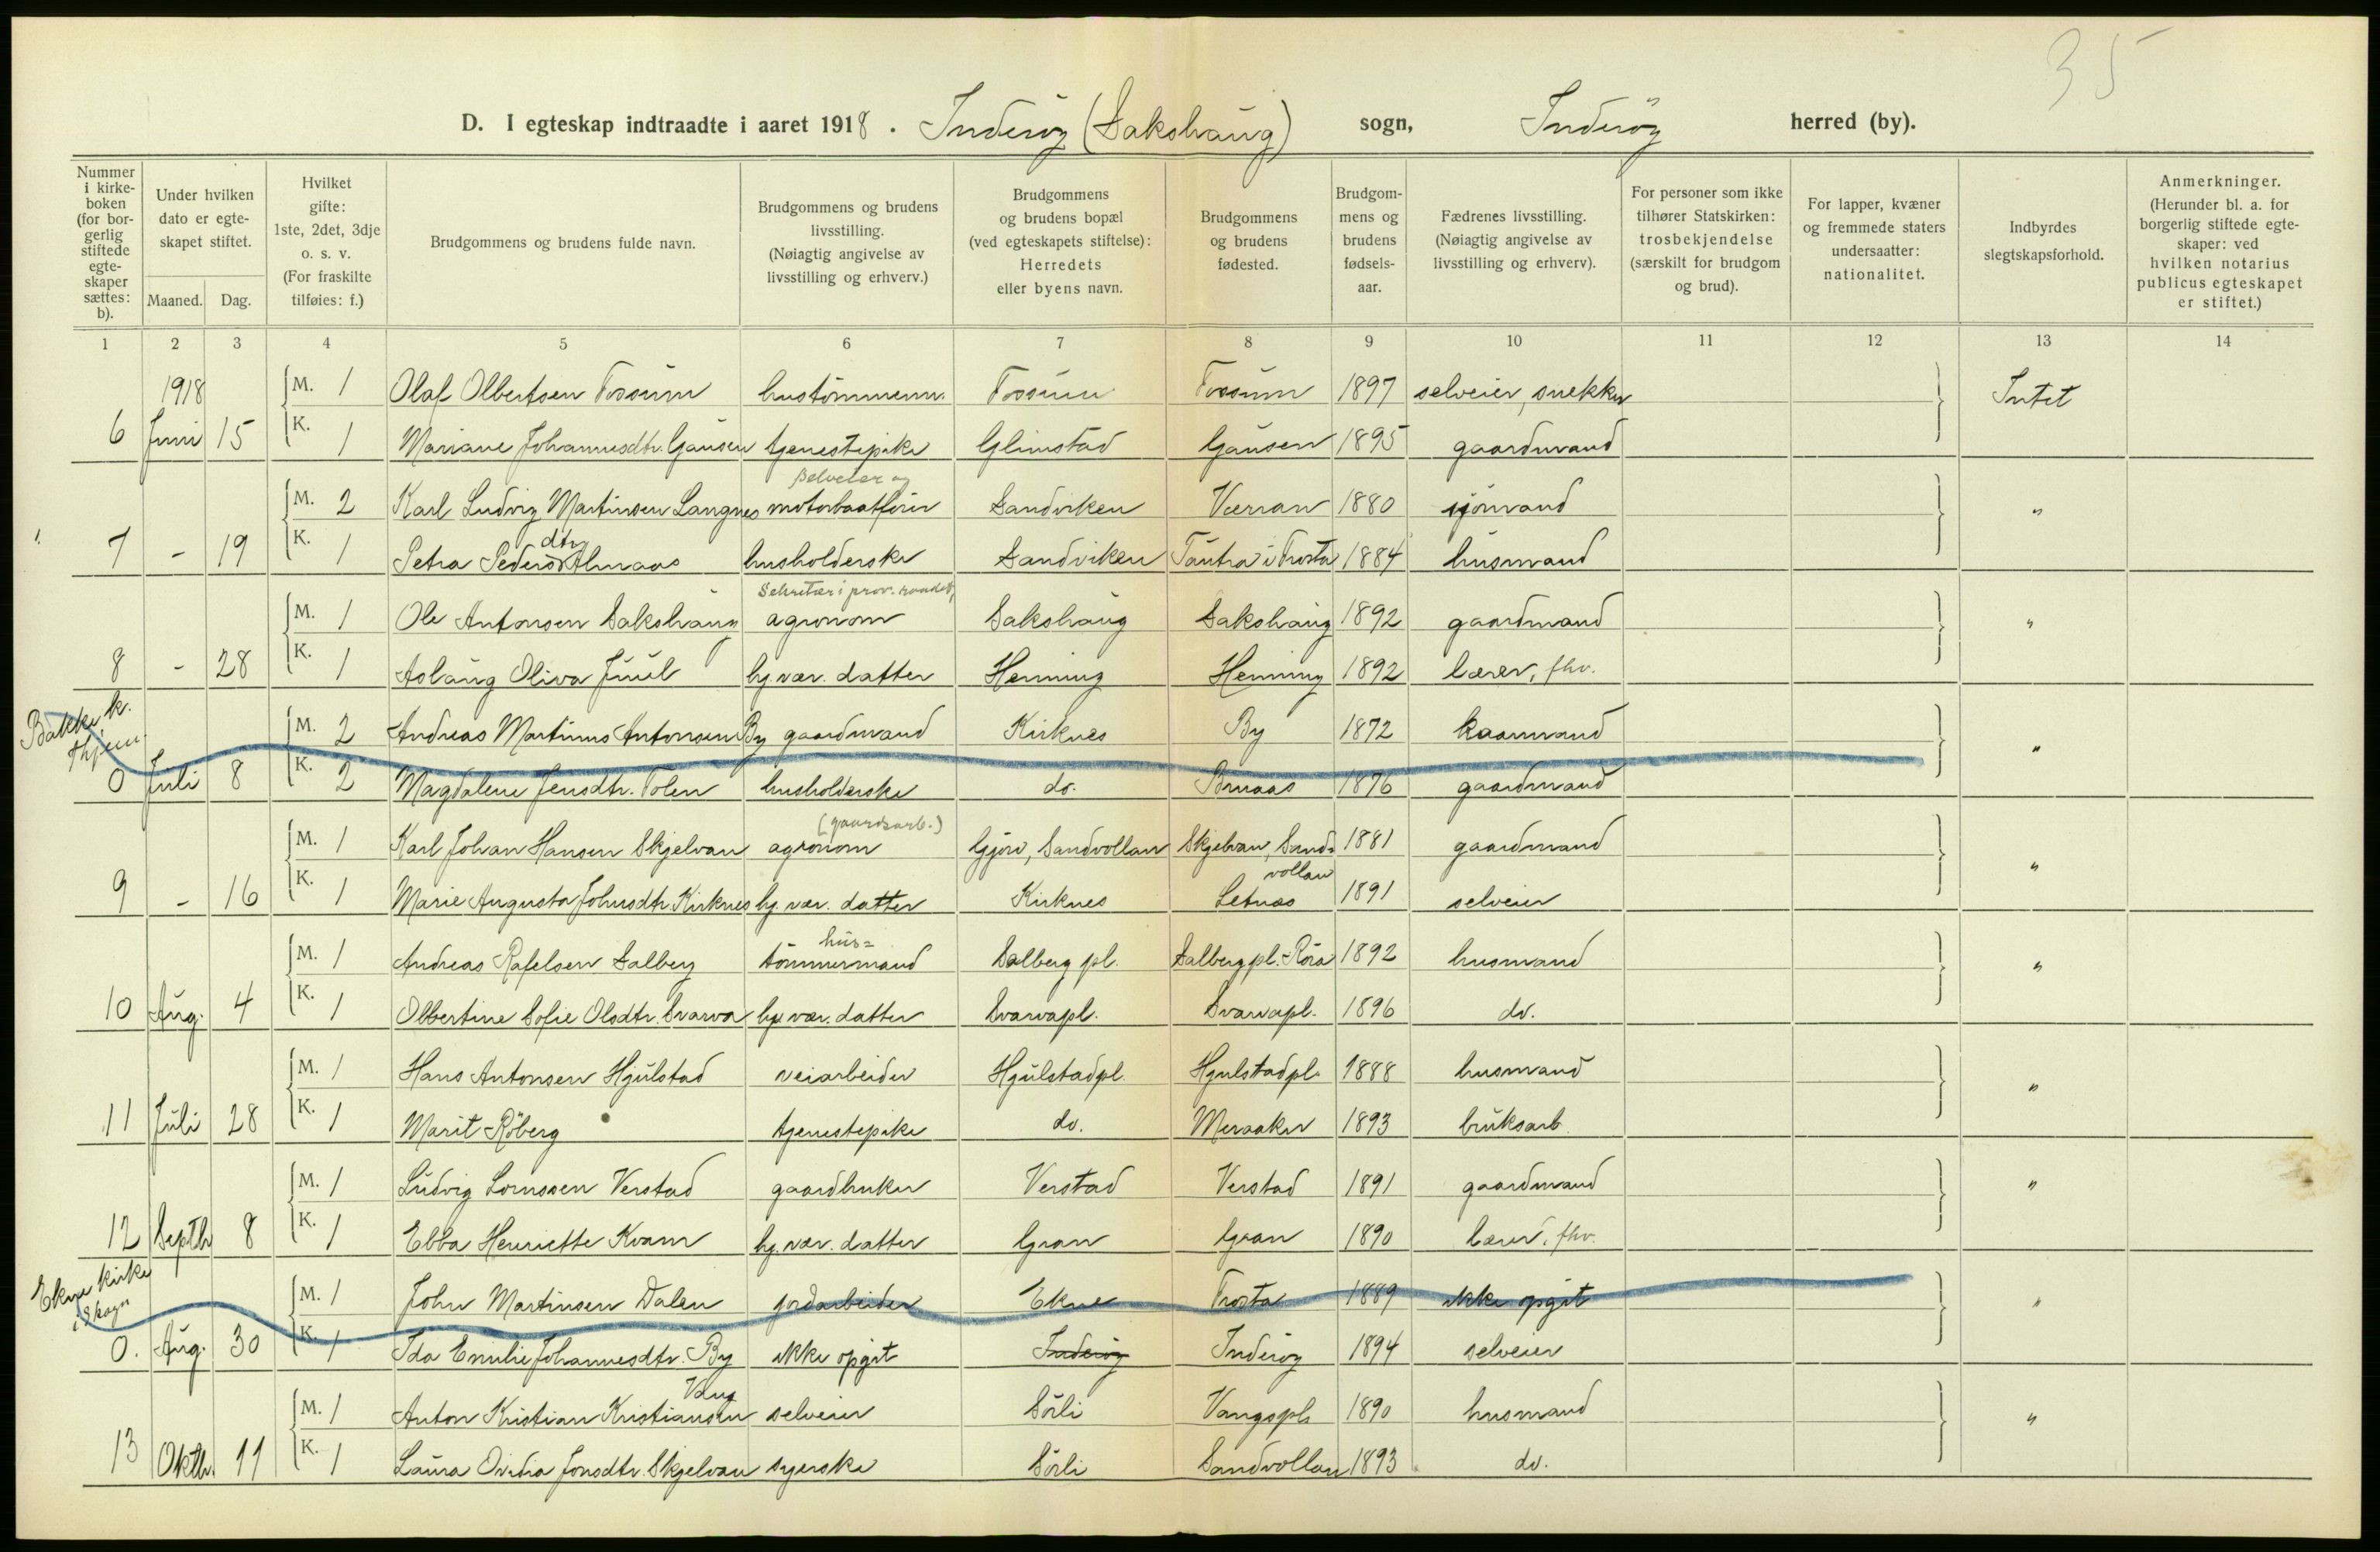 35
D. I egteskap indtraadte i aaret 1918. Inderöy (Sakshaug) sogn, Inderöy herred (by).
Nummer i kirkeboken (for borgerlig stiftede egteskaper sættes: b).
Under hvilken dato er egteskapet stiftet.
Maaned. Dag.
Hvilket gifte: 1ste, 2det, 3dje o. s. v. (For fraskilte tilføies: f.)
Brudgommens og brudens fulde navn.
Brudgommens og brudens livsstilling. (Nøiagtig angivelse av livsstilling og erhverv.)
Brudgommens og brudens bopæl (ved egteskapets stiftelse): Herredets eller byens navn.
Brudgommens og brudens fødested.
Brudgommens og brudens fødselsaar.
Fædrenes livsstilling. (Nøiagtig angivelse av livsstilling og erhverv).
For personer som ikke tilhører Statskirken: trosbekjendelse (særskilt for brudgom og brud).
For lapper, kvæner og fremmede staters undersaatter: nationalitet.
Indbyrdes slegtskapsforhold.
Anmerkninger. (Herunder bl. a. for borgerlig stiftede egteskaper: ved hvilken notarius publicus egteskapet er stiftet.)
1 2 3 4 5 6 7 8 9 10 11 12 13 14
1918 M. 1 Olaf Olbertsen Tossum hustömmerm. Tossum Tossum 1897 selveier, snekker Intet
6 Juni 15 K. 1 Mariane Johannesdtr. Gausen tjenestepike Glimstad Gausen 1895 gaardmand
selveier og
M. 2 Karl Ludvig Martinsen Langnes motorbaatförer Sandviken Værran 1880 sjömand "
dtr
7 - 19 K. 1 Petra Peders Almaas husholderske Sandviken Tautra i Frosta 1884 husmand
Sekretær i prov. raadet,
M. 1 Ole Antonsen Sakshaug agronom Sakshaug Sakshaug 1892 gaardmand "
8 - 28 K. 1 Aslaug Oliva Juul hj. vær. datter Henning Henning 1892 lærer, fhv.
Bakke k.
Thjem.
M. 2 Andreas Martinus Antonsen By gaardmand Kirknes By 1872 kaarmand "
0 Juli 8 K. 2 Magdalene Jensdtr. Tolen husholderske do. Bruaas 1876 gaardmand
(gaardsarb.)
M. 1 Karl Johan Hansen Skjelvan agronom Gjörv, Sandvollan Skjelvan, Sand= 1881 gaardmand "
vollan
9 - 16 K. 1 Marie Augusta Johnsdtr. Kirknes hj. vær. datter Kirknes Letnæs 1891 selveier
hus=
M. 1 Andreas Rafelsen Salberg tömmermand Salberg pl. Salberg pl. Röra 1892 husmand "
10 Aug. 4 K. 1 Olbertine Sofie Olsdtr. Svarva hj. vær. datter Svarvapl. Svarvapl. 1896 do.
M. 1 Hans Antonsen Hjulstad veiarbeider Hjulstadpl. Hjulstadpl. 1888 husmand "
11 Juli 28 K. 1 Marit Röberg tjenestepike do. Meraaker 1893 bruksarb.
M. 1 Ludvig Lornssen Verstad gaardbruker Verstad Verstad 1891 gaardmand "
12 Septb 8 K. 1 Ebba Henriette Kvam hj. vær. datter Gran Gran 1890 lærer, fhv.
Ekne kirke
i Skogn
M. 1 John Martinsen Dalen jordarbeider Ekne Frosta 1889 ikke opgit "
0. Aug. 30 K. 1 Ida Emilie Johannesdtr. By ikke opgit Inderöy Inderöy 1894 selveier
Vang
M. 1 Anton Kristian Kristiansen selveier Sörli Vangspl. 1890 husmand "
13 Oktb. 11 K. 1 Laura Ovidia Jonsdtr. Skjelvan syerske Sörli Sandvollan 1893 do.